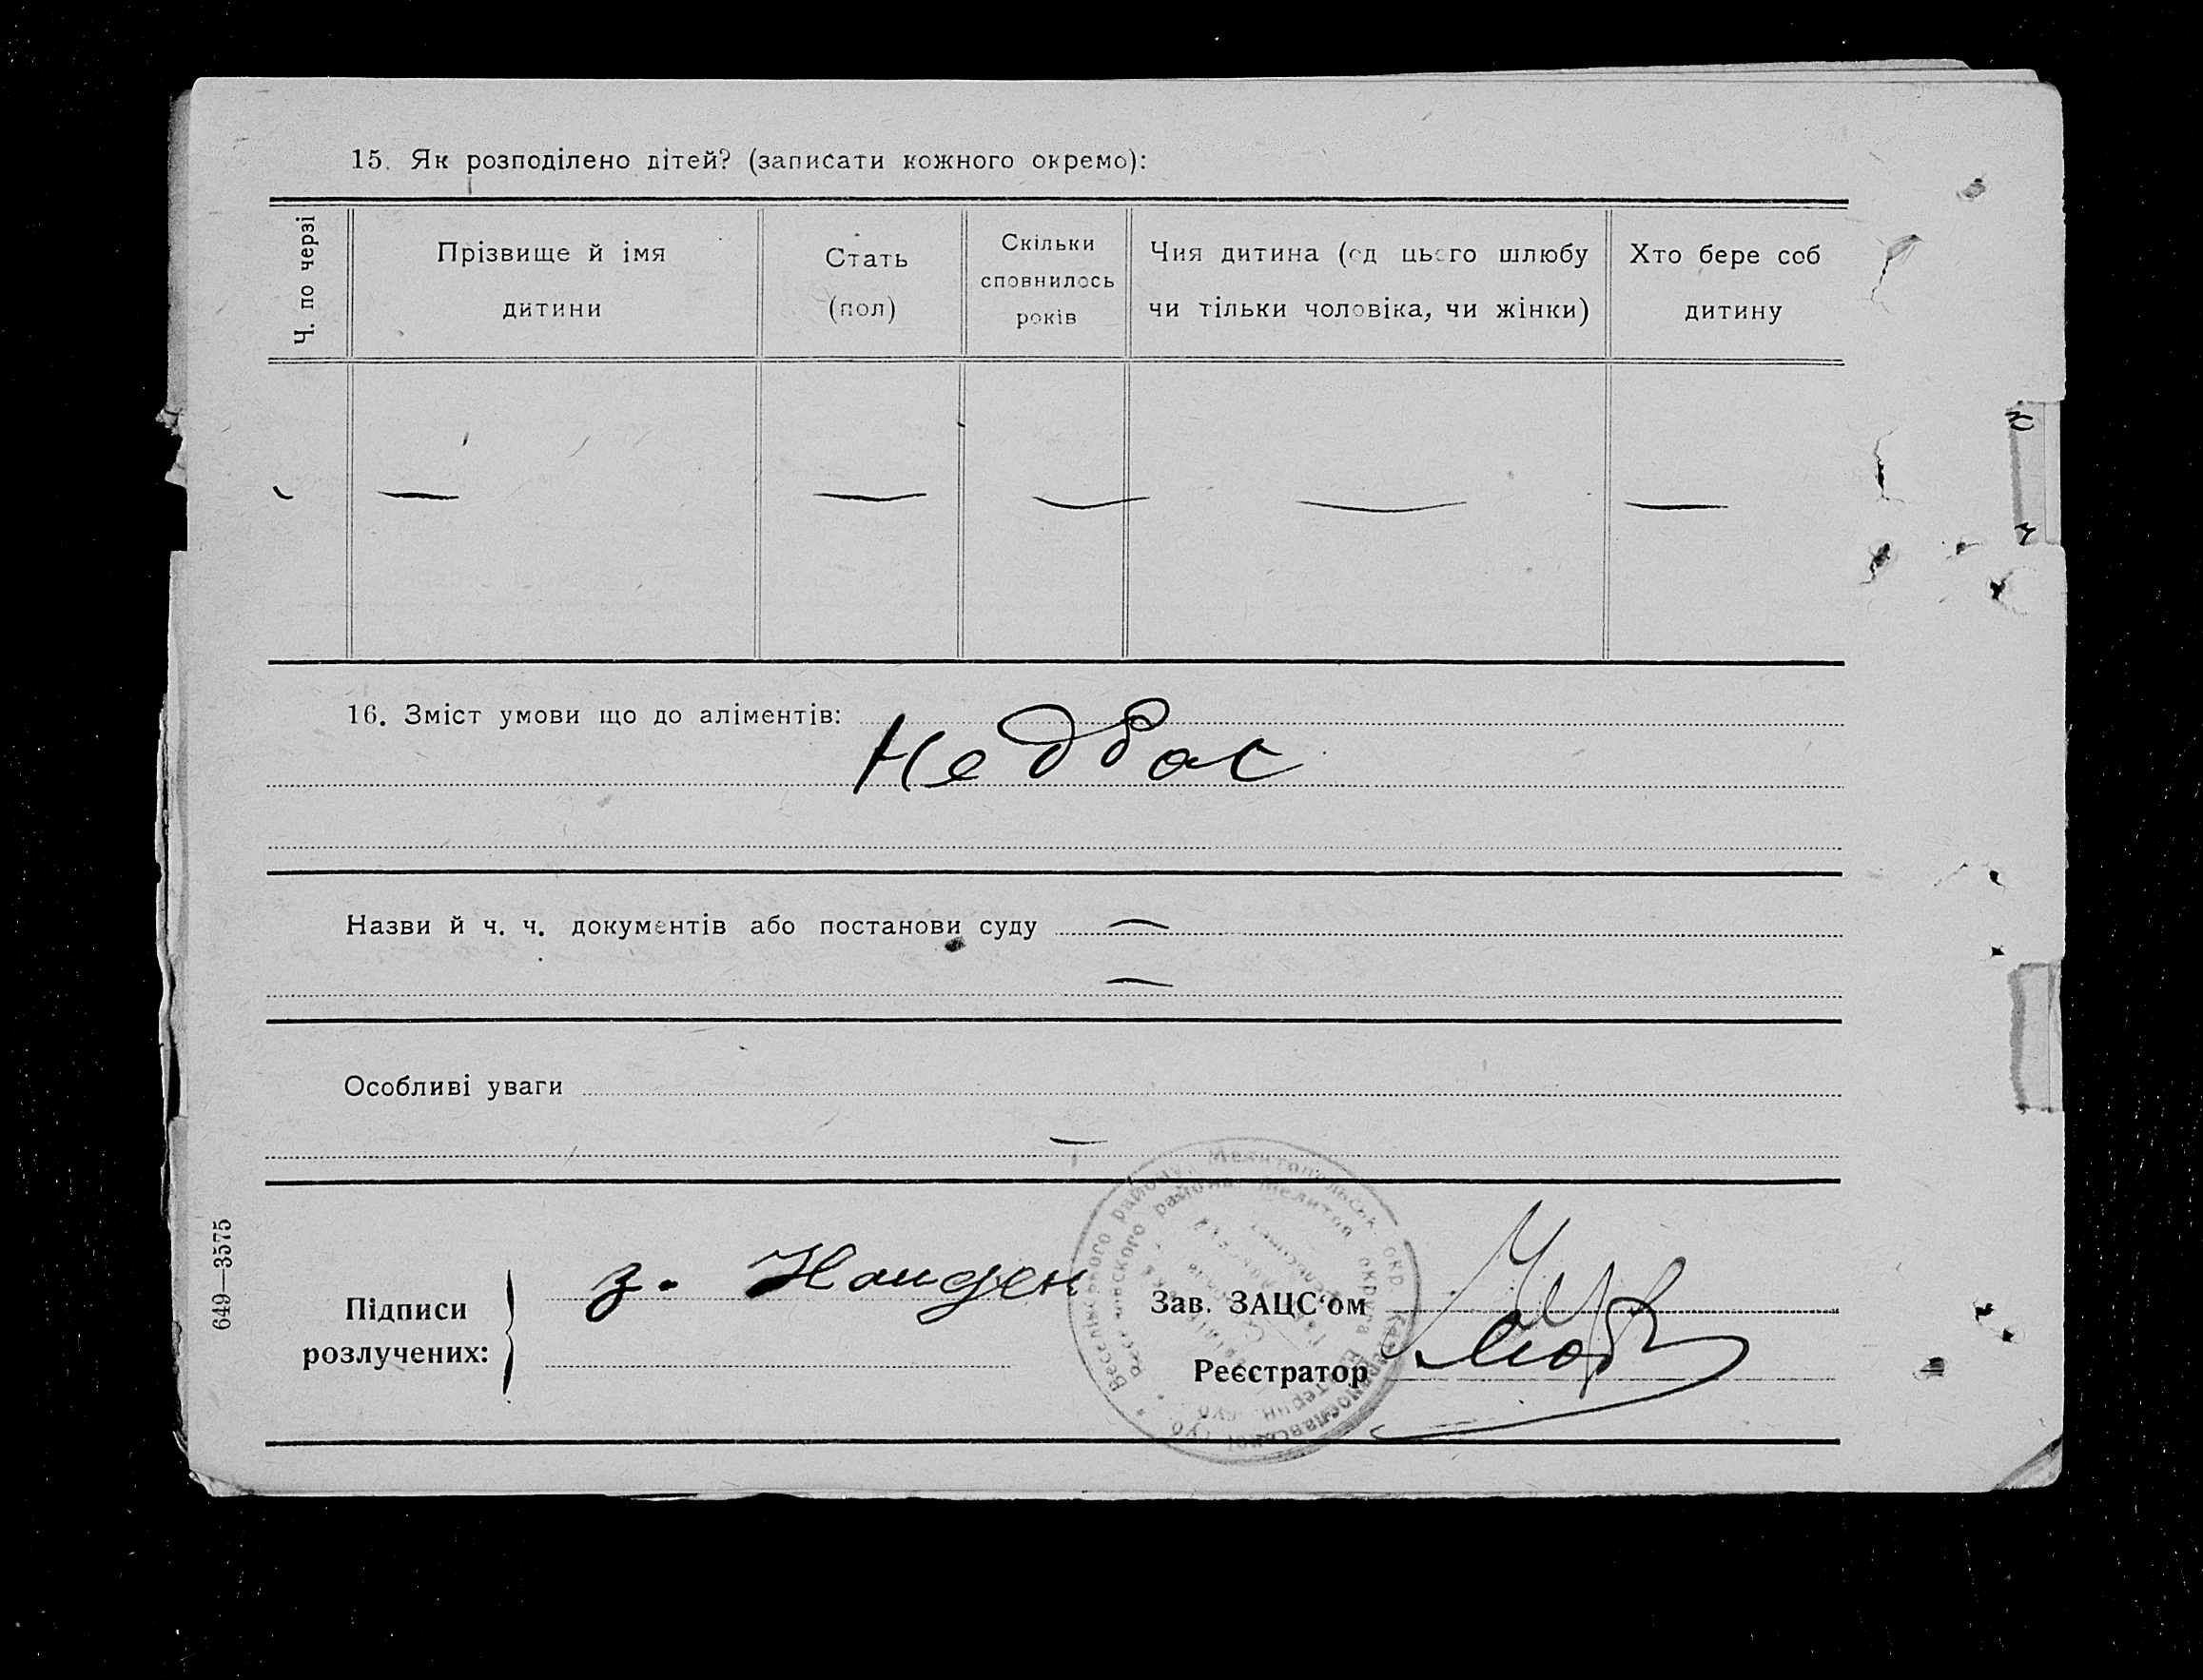 15. Як розподілено дітей? (записати кожного окремо):
Ч. по черзі
Прізвище й імя
дитини
Стать
(пол)
Скільки
сповнилось
років
Чия дитина (од цього шлюбу
чи тільки чоловіка, чи жінки)
Хто бере соб
дитину
16. Зміст умови що до аліментів:
Недбає
Назви й ч. ч. документів або постанови суду
Особливі уваги
649—3575
Підписи
розлучених:
з. Найден
Зав. ЗАЦС'ом
Реєстратор
Мелитопольськ. окр. Катеринославської губ.
района Мелитоп округа